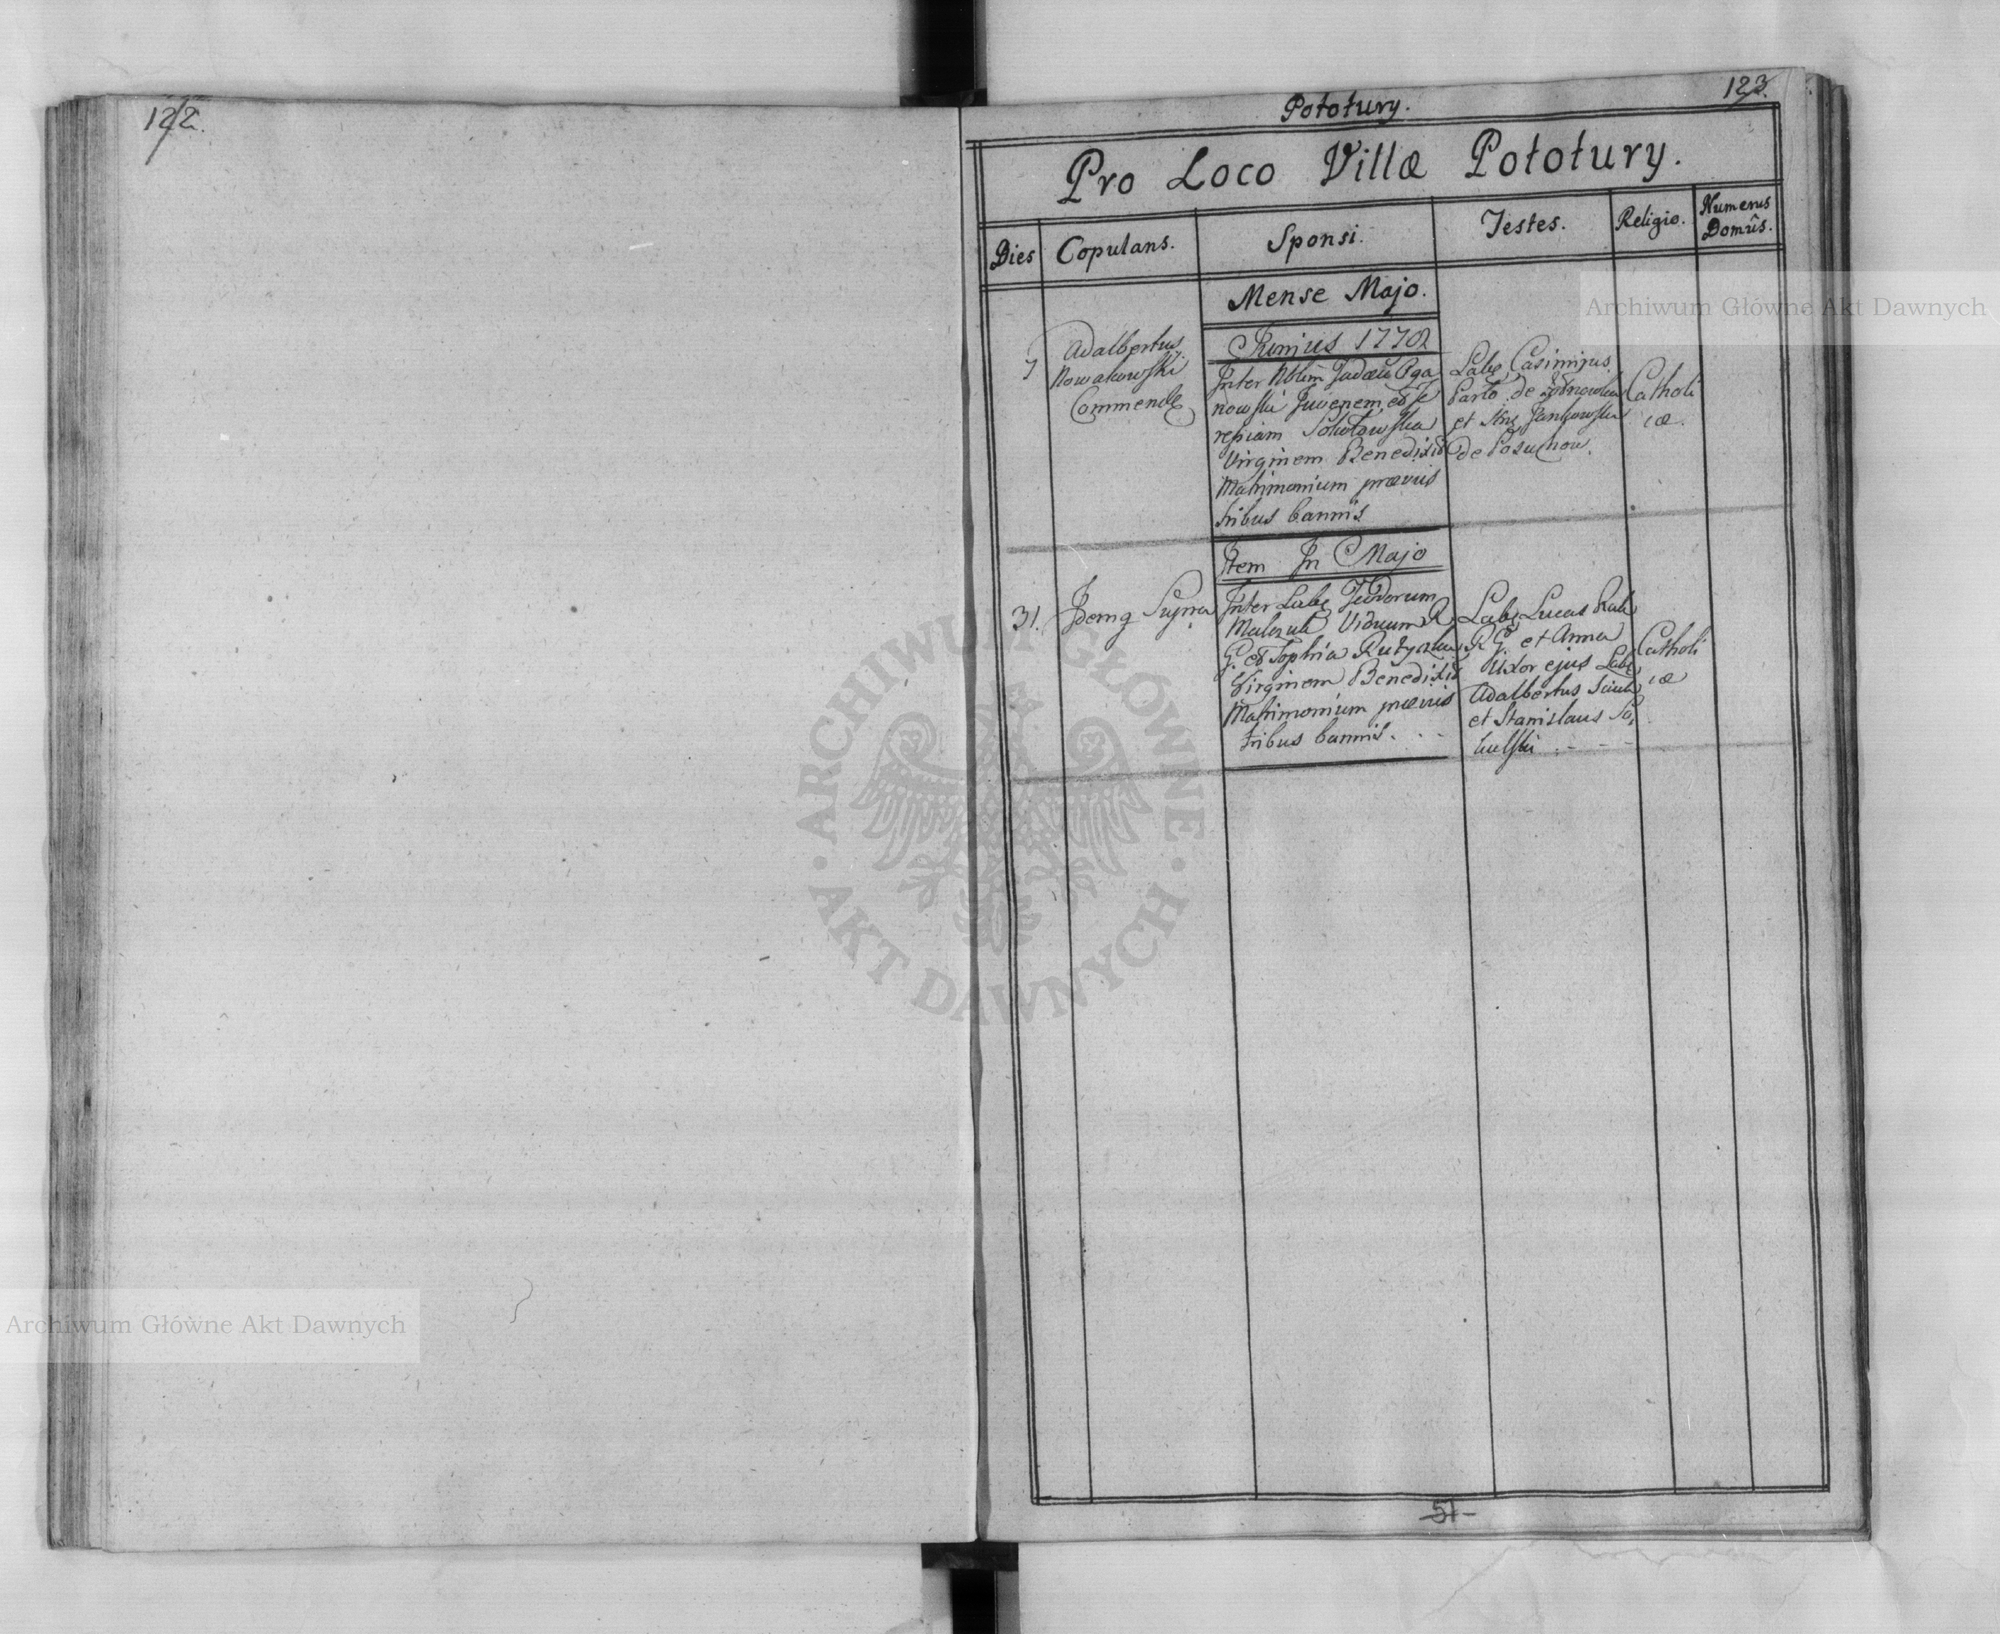 122.
123.
Potołury.
Pro Loco Villæ Potołury.
Dies
Copulans.
Sponsi.
Testes.
Religio.
Numerus
Domûs.
Mense Majo.
Junius 1772
7
Adalbertus
Nowakowski
Commend
Inter Nblem
nowski Juvenem, et Te
resiam Sokołowska
Virginem Benedixit
Matrimonium prævius
tribus bannis
Lab Casimirus
de
et Jankowska
de Posuchow.
Catholi
cæ.
Item In Majo
31.
Idemq Supra
Inter Lab Teodorum
Viduum R
G. et Sophia
Virginem Benedixit
Matrimonium prævius
tribus bannis. . . -
Lab Lucas
R G. et Anna
Uxor ejus Lab
Adalbertus
et Stanislaus So,
bulski . - - -
Catholi
cæ
-51-
Archiwum Główne Akt Dawnych
Archiwum Główne Akt Dawnych
ARCHIWUM GŁÓWNE
AKT DAWNYCH